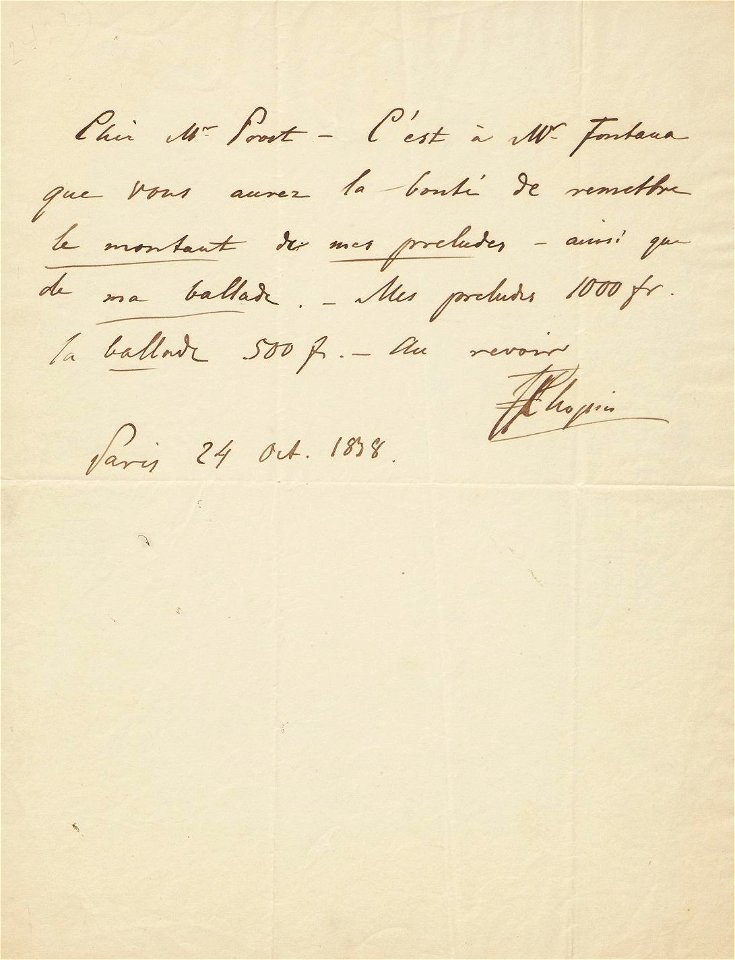 Cher Mr Probst – C'est à Mr Fontana
que vous aurez la bonté de remettre
le montant de mes preludes – ainsi que
de ma ballade. – Mes preludes 1000 fr.
la ballade 500 fr. – Au revoir
FF Chopin
Paris 24 Oct. 1838.